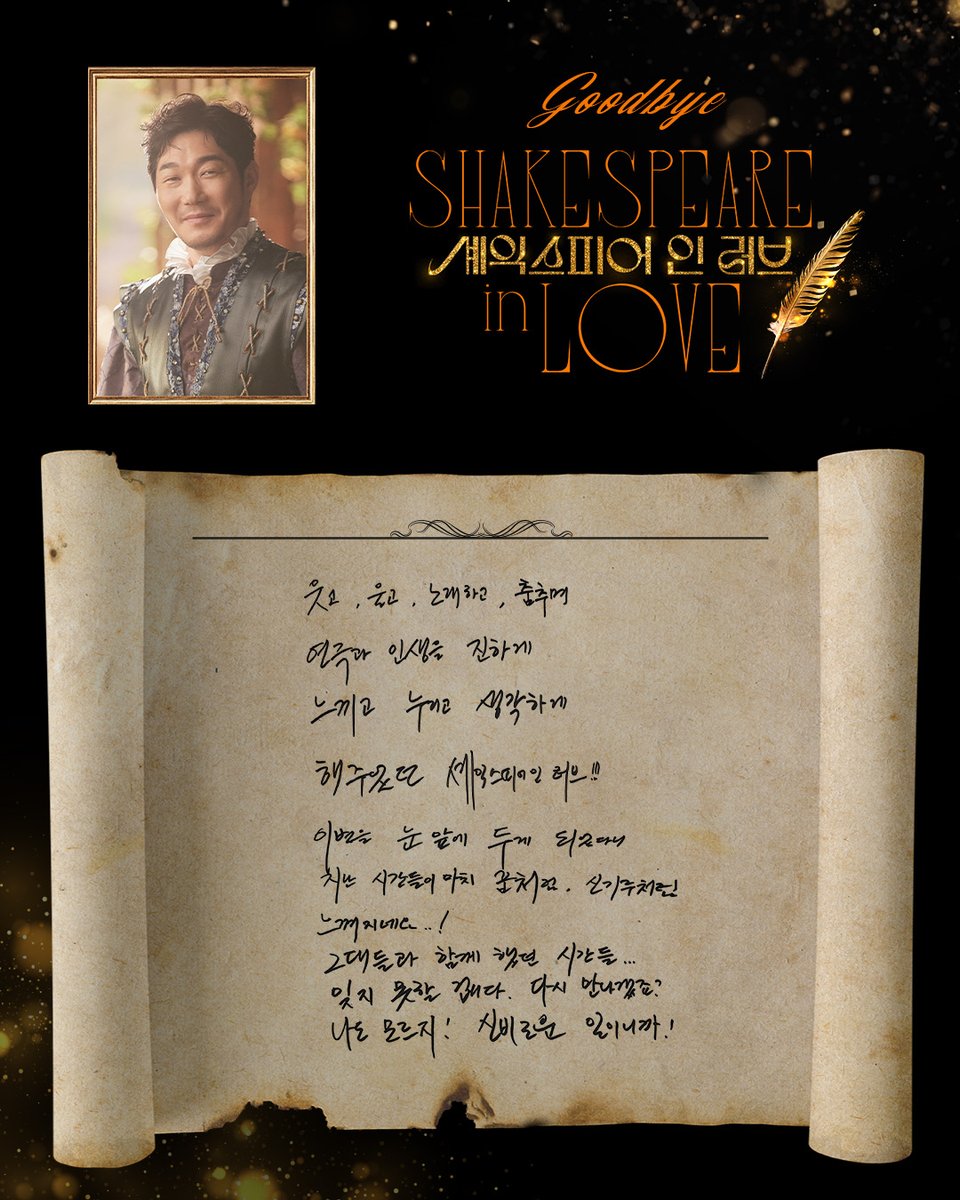 Goodbye
SHAKESPEARE
셰익스피어 인 러브
in LOVE
웃고, 울고, 노래하고, 춤추며
연극과 인생을 진하게
느끼고 누리고 생각하게
해주었던 셰익스피어 인 러브!!!
이별을 눈 앞에 두게 되었다니
지난 시간들이 마치 꿈처럼. 신기루처럼
느껴지네요..!
그대들과 함께 했던 시간들...
잊지 못할 겁니다. 다시 만나겠죠?
나도 모르지! 신비로운 일이니까!